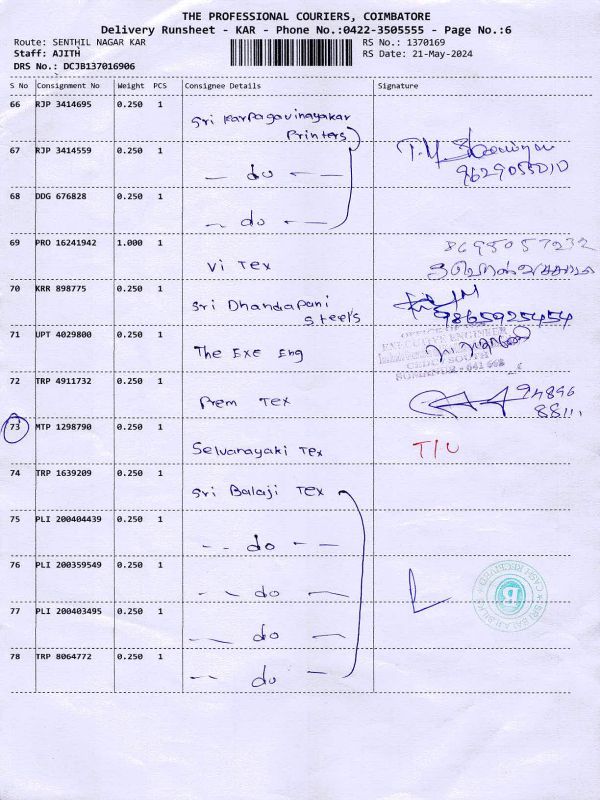 THE PROFESSIONAL COURIERS, COIMBATORE
Delivery Runsheet - KAR - Phone No.:0422-3505555 - Page No.:6
Route: SENTHIL NAGAR KAR
RS No.: 1370169
Staff: AJITH
RS Date: 21-May-2024
DRS No.: DCJB137016906
S No Consignment No Weight PCS Consignee Details Signature
66 RJP 3414695 0.250 1 Sri Karpagavinayakar
Printers
67 RJP 3414559 0.250 1 - do -
9629055010
68 DDG 676828 0.250 1 - do -
69 PRO 16241942 1.000 1 Vi Tex
8695057232
70 KRR 898775 0.250 1 Sri Dhandapani
Steels
9865925454
71 UPT 4029800 0.250 1 The Exe Eng
EXECUTIVE ENGINEER
SOUTH
72 TRP 4911732 0.250 1 Prem Tex
94896
88111
73 MTP 1298790 0.250 1 Selvanayaki Tex T/U
74 TRP 1639209 0.250 1 Sri Balaji Tex
75 PLI 200404439 0.250 1 -- do --
76 PLI 200359549 0.250 1 - do -
CASH RECEIVED
B
77 PLI 200403495 0.250 1 - do -
78 TRP 8064772 0.250 1 - do -